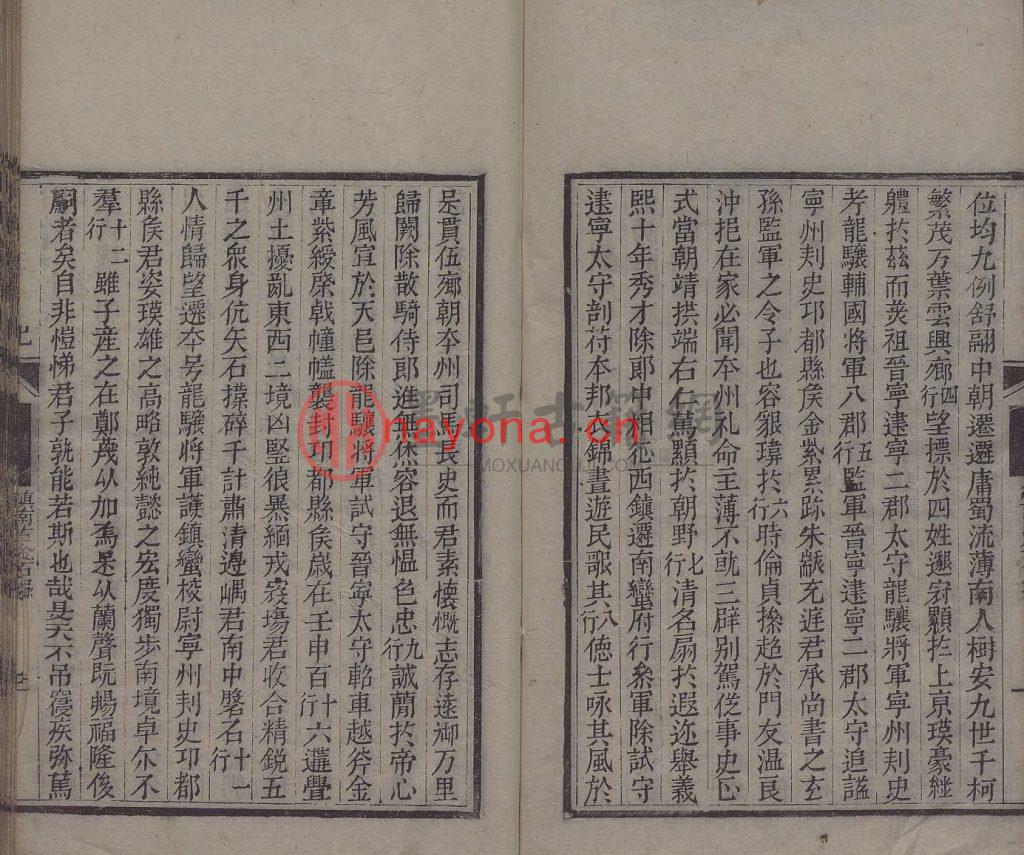 位均九例舒翮中朝遷遷庸蜀流薄南人樹安九世千柯
繁茂万葉雲興鄉四行望標於四姓邈冠顯扵上京瑛豪継
體扵茲而美祖晉寧建寧二郡太守龍驤將軍寧州刾史
考龍驤輔國將軍八郡五行監軍晉寧建寧二郡太守追謚
寧州刾史邛都縣侯金紫累跡朱黻充遅君承尚書之玄
孫監軍之令子也容貇瑋扵六行時倫貞操超於門友溫良
沖挹在家必聞本州礼命主薄不就三辟别駕従事史正
式當朝靖拱端右仁篤顯扵朝野七行清名扇扵遐迩舉義
熙十年秀才除郎中相征西鎮遷南蠻府行叅軍除試守
建寧太守剖苻本邦衣錦晝遊民歌其八行徳士咏其風於
是貫伍鄉朝本州司馬長史而君素懐慨志存遠御万里
歸闕除散騎侍郎進無烋容退無愠色忠九行誠簡扵帝心
芳風宣於天邑除龍驤將軍試守晉寧太守軺車越斧金
章紫綬棨戟幢㡓襲封邛都縣侯歳在壬申百十行六遘亹
州土擾亂東西二境凶竪狼暴緬戎寇塲君收合精銳五
千之衆身伉矢石撲碎千計肅清邊嵎君南中磐石十一行
人情歸望遷本号龍驤將軍護鎮蠻校尉寧州刾史邛都
縣侯君姿瑛雄之高略敦純懿之宏度獨步南境卓尒不
羣十二行雖子産之在鄭蔑以加焉是以蘭聲既暢福隆後
嗣者矣自非愷悌君子孰能若斯也哉昊天不吊寢疾弥篤
滇南古金石録
MOXUANGUJI
nayona.cn